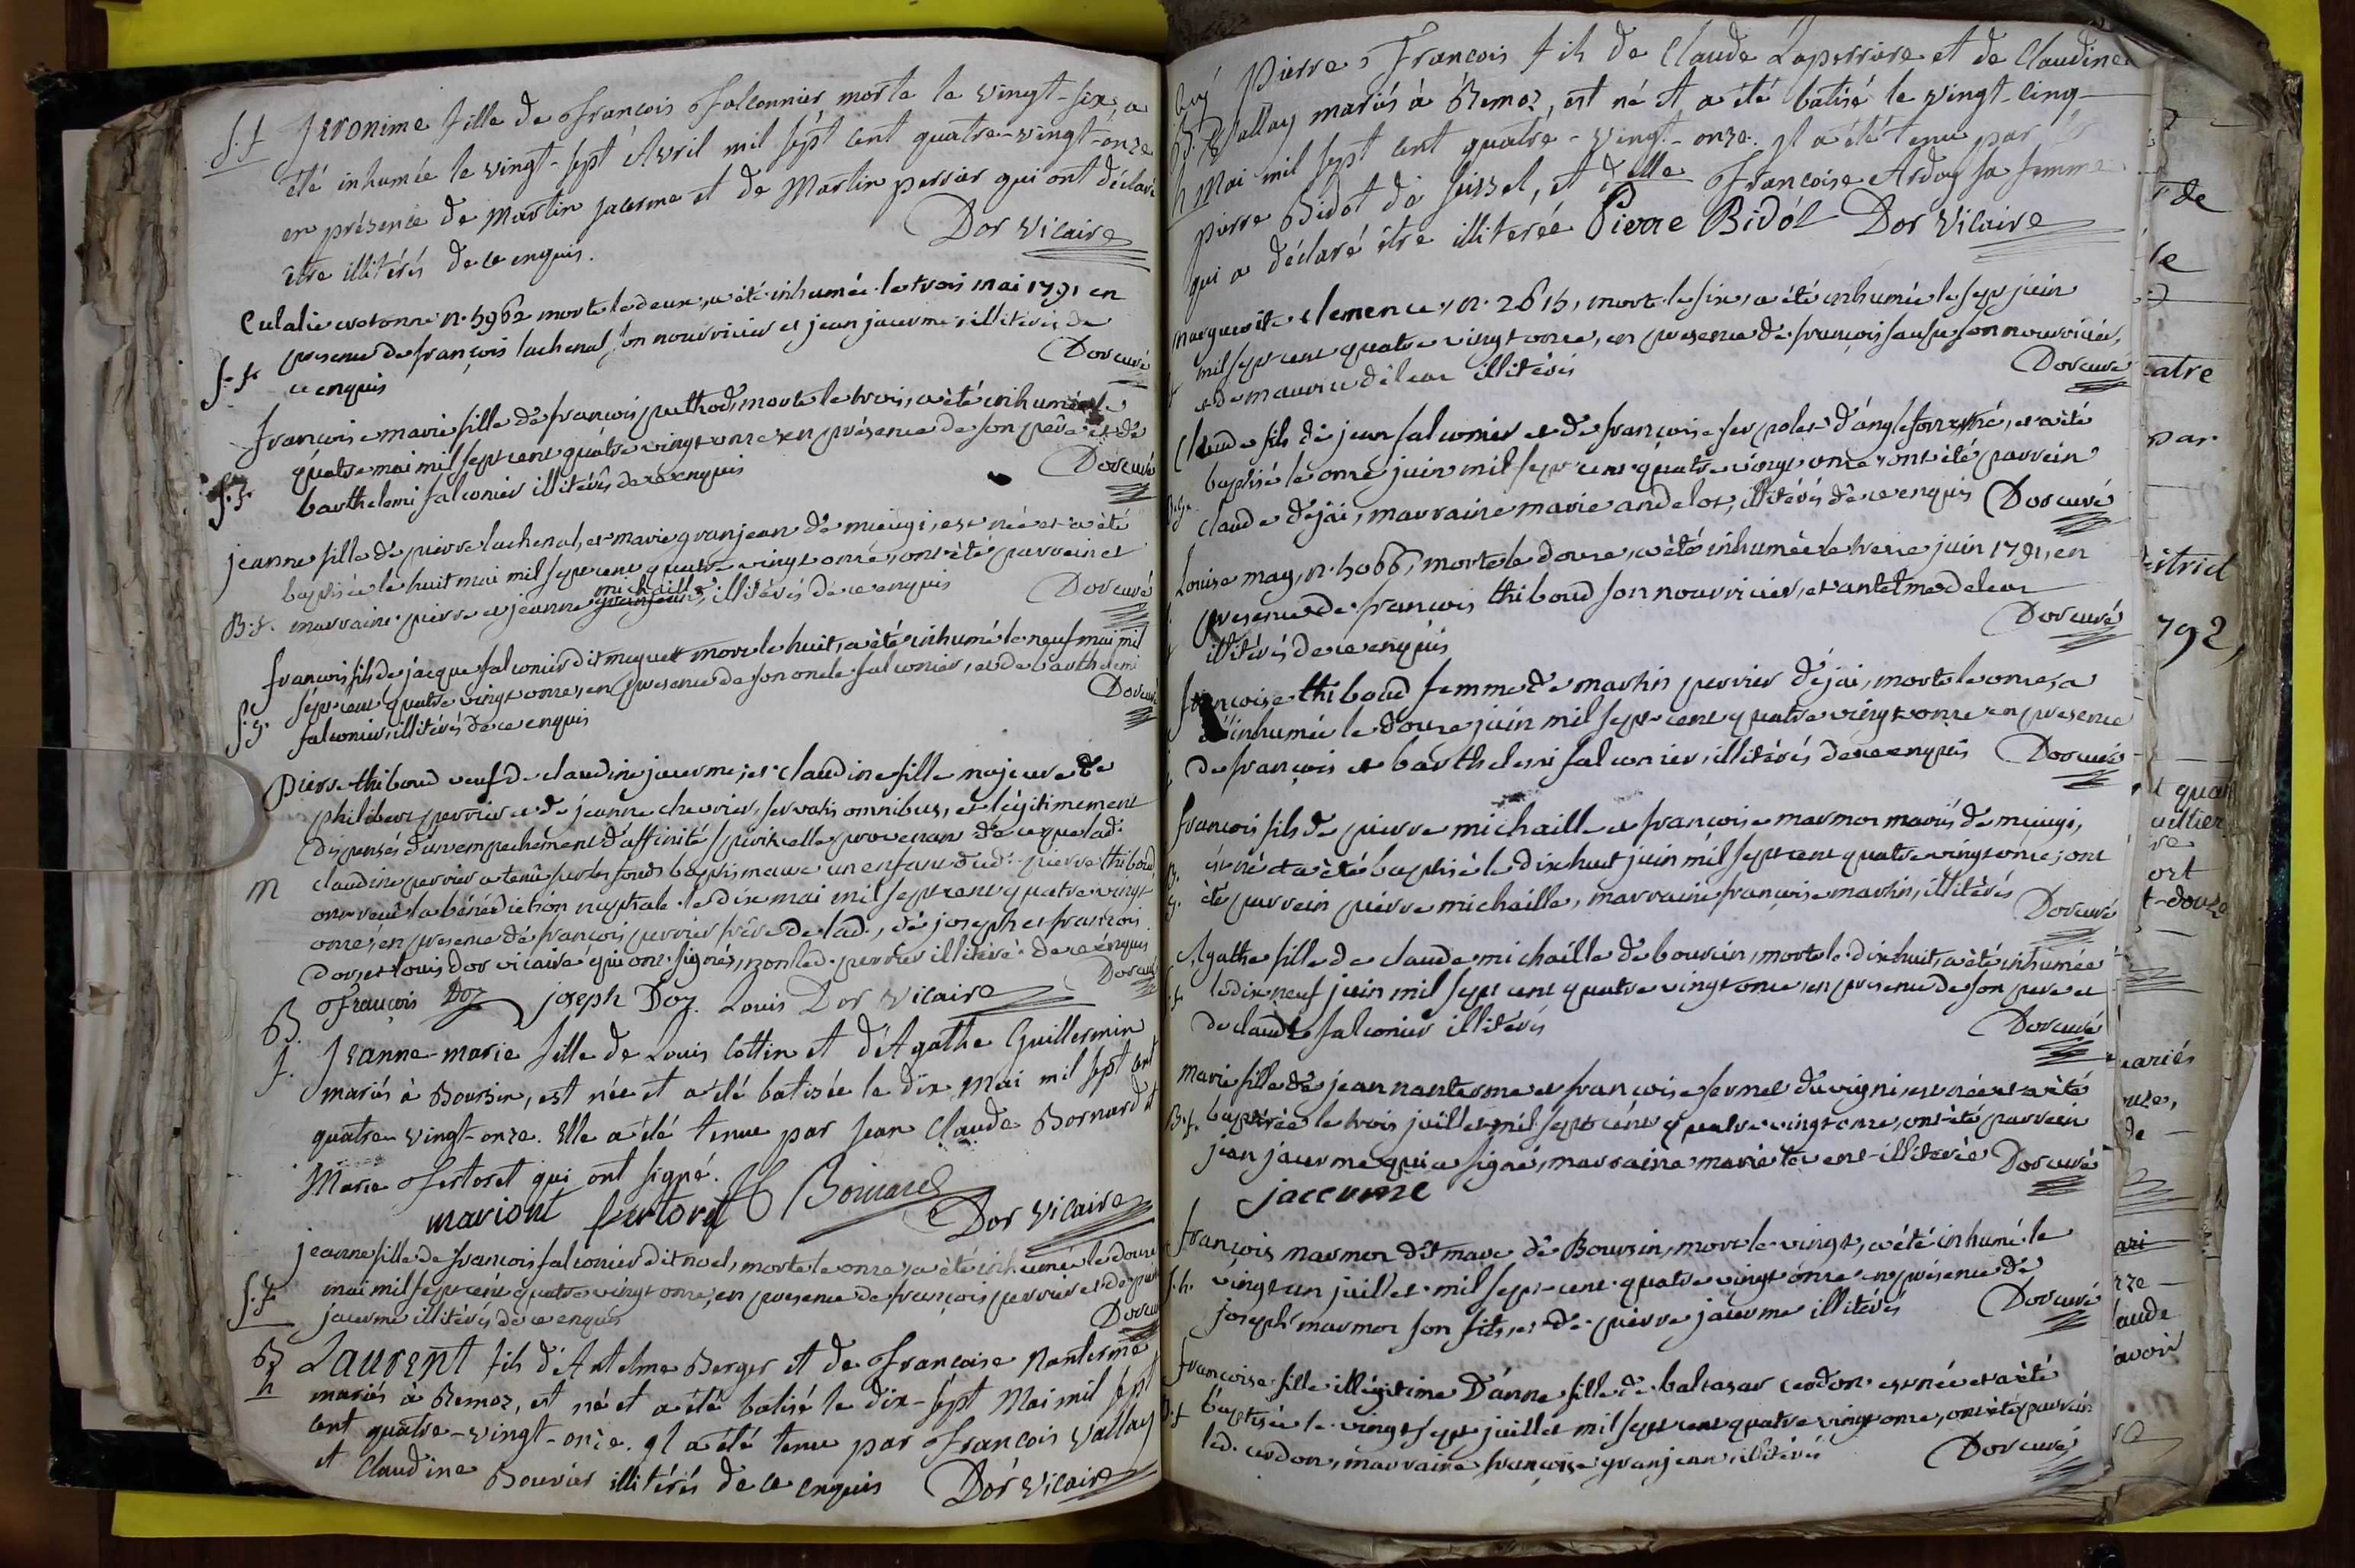 S.f Jeronime fille de François Falconnier morte le vingt-six, a
été inhumée le vingt-sept Avril mil sept cent quatre-vingt-onze
en présence de Martin jacerme et de Martin perrier qui ont déclaré
être illitérés de ce enquis. Dor vicaire
Eulalie n. 5962 morte le deux, a été inhumée le trois mai 1791 en
presence de françois lachenal son nourricier et jean jacerme, illitérés de
S.f. ce enquis Dor curé
françoise marie fille de françois puthod, morte le trois, a été inhumée le
quatre mai mil sept cent quatre vingt onze en présence de son père et de
S.f. barthelemi falconier illitérés de ce enquis Dor curé
jeanne fille de pierre lachenal, et marie granjean de mieugi, est née et a été
baptisée le huit mai mil sept cent quatre vingt onze, ont été parrain et
michaille
B.f. marraine pierre et jeanne granjean, illitérés de ce enquis Dor curé
françois fils de jacque falconier dit muguet mort le huit, a été inhumé le neuf mai mil
sept cent quatre vingt onze, en presence de son oncle falconier, et de barthelemi
S.g. falconier, illitérés de ce enquis Dor curé
pierre thiboud veuf de claudine jacerme, et claudine fille majeure de
philibert perrier et de jeanne chevrier, servatis omnibus, et légitimement
dispensés d'un empechement d'affinité spirituelle provenant de ce que lad.
m claudine perrier a tenu sur les fonds baptismaux un enfant dud. pierre thiboud,
ont reçu la bénédiction nuptiale le dix mai mil sept cent quatre vingt
onze, en presence de françois perrier frère de lad., de joseph et françois
Dor, et louis Dor vicaire qui ont signés, non led. perrier illitéré de ce enquis
Dor curé
François Doz joseph Doz. Louis Dor vicaire
B.
f. Jeanne-marie fille de Louis Cottin et d'Agathe Guillermin
mariés à Boursin, est née et a été batisée le dix Mai mil sept cent
quatre-vingt-onze. Elle a été tenue par Jean Claude Bornard et
Marie Fertoret qui ont signé.
mariont fertoret JC Bornard Dor vicaire
jeanne fille de françois falconier dit noel, morte le onze, a été inhumée le douze
S.f. mai mil sept cent quatre vingt onze, en presence de françois perrier et de pierre
jacerme illitérés de ce enquis Dor curé
B Laurent fils d'Antelme Berger et de Françoise Nanterme
h mariés à Remoz, est né et a été batisé le dix-sept Mai mil sept
cent quatre-vingt-onze. Il a été tenu par François Vallay
et Claudine Bouvier illitérés de ce enquis Dor vicaire
Pierre, François fils de Claude Laperrière et de Claudine
B. Vallay mariés à Remoz, est né et a été batisé le vingt-cinq
h Mai mil sept cent quatre-vingt-onze. Il a été tenu par
pierre Bidot de Seissel, et dlle Françoise Arday sa femme
qui a déclaré être illiterée Pierre Bidot Dor Vicaire
marguerite clemence, n. 2615, morte le six, a été inhumée le sept juin
mil sept cent quatre vingt onze, en presence de françois son nourricier,
et de maurice illitérés Dor curé
Claude fils de jean falconier et de françoise d'anglefort, est né, et a été
baptisé le onze juin mil sept cent quatre vingt onze ont été parrein
B.g. claude déjai, marraine marie andelot, illitérés de ce enquis Dor curé
Louise may, n. 5066, morte le douze, a été inhumée le treize juin 1791, en
presence de françois thiboud son nourricier, et antelme
illitérés de ce enquis Dor curé
françoise thiboud femme de martin perrier déjai, morte le onze, a
été inhumée le douze juin mil sept cent quatre vingt onze en presence
de françois et barthelemi falconier, illitérés de ce enquis Dor curé
françois fils de pierre michaille et françoise marmor mariés de mieugi,
B. est né et a été baptisé le dix huit juin mil sept cent quatre vingt onze, ont
g. été parrein pierre michaille, marraine françoise martin, illitérés Dor curé
Agathe fille de claude michaille de boursin, morte le dix huit, a été inhumée
S.f. le dix neuf juin mil sept cent quatre vingt onze, en presence de son pere et
de claude falconier illitérés Dor curé
marie fille de jean nanterme et françoise fernet est née et a été
B.f. baptisée le trois juillet mil sept cent quatre vingt onze, ont été parrein
jean jacerme qui a signé, marraine marie illiterée Dor curé
jaccerme
françois marmor dit marc de Boursin, mort le vingt, a été inhumé le
S.h. vingt un juillet mil sept cent quatre vingt onze en présence de
joseph marmor son fils, et de pierre jacerme illitérés Dor curé
françoise fille illégitime d'anne fille de baltasar cerdon est née et a été
B.f baptisée le vingt sept juillet mil sept cent quatre vingt onze, ont été parrein
led. cerdon, marraine françoise granjean, illitérés Dor curé
de
le
atre
par
istrict
792,
t quat
ort
t-douze
mariés
de
ari
aude
avoir